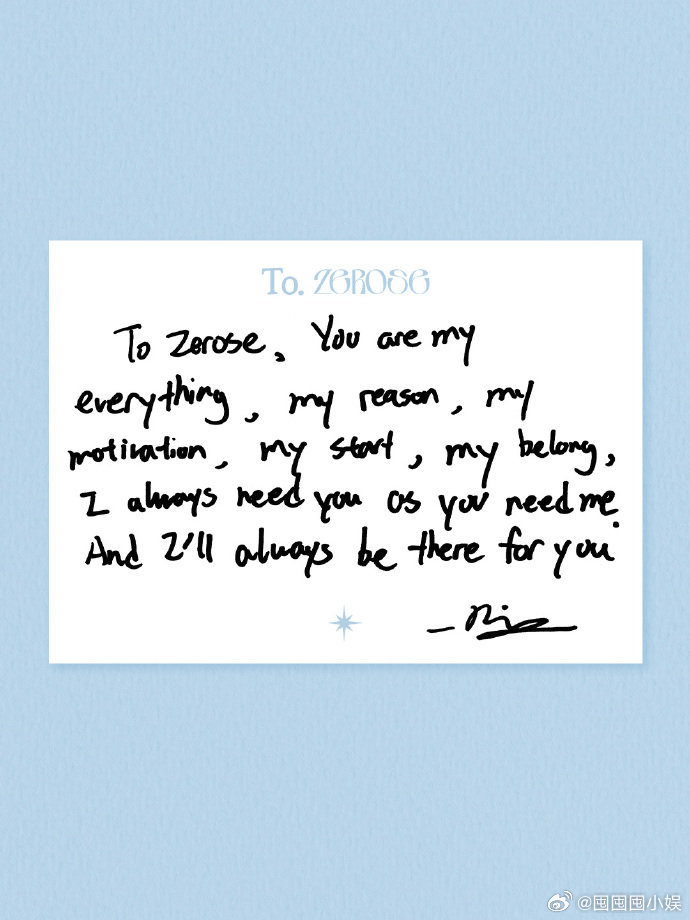 To. ZEROSE
To zerose, You are my
everything, my reason, my
motivation, my start, my belong,
I always need you as you need me.
And I'll always be there for you
@囤囤囤小娱